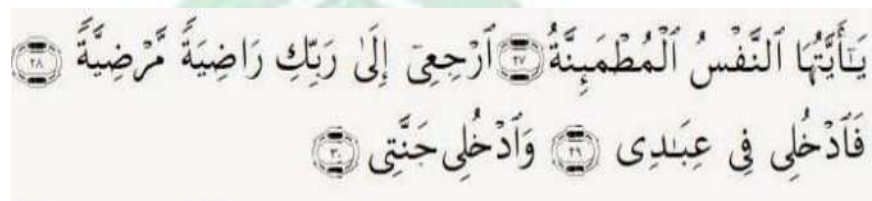 يَـٰٓأَيَّتُهَا ٱلنَّفْسُ ٱلْمُطْمَئِنَّةُ ٢٧ ٱرْجِعِىٓ إِلَىٰ رَبِّكِ رَاضِيَةً مَّرْضِيَّةً ٢٨
فَٱدْخُلِى فِى عِبَـٰدِى ٢٩ وَٱدْخُلِى جَنَّتِى ٣٠